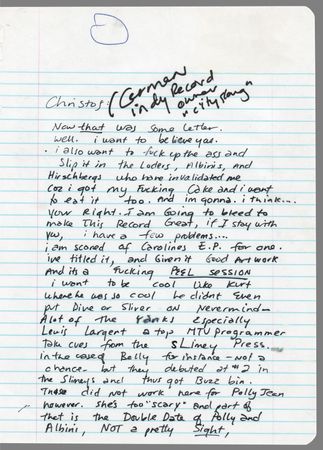 Christof:
(German
indy Record
owner
"City slang"
Now that was some letter.
Well. i want to believe you.
. i also want to fuck up the ass and
Slip it in the Loders, Albinis, And
Hirschbergs who have invalidated me
Coz i got my Fucking Cake and i want
to eat it too. And im gonna. i think...
Your Right. I am Going to bleed to
make This Record Great, if I stay with
you, i have a few problems....
i am scared of Carolines E.P. for one.
ive titled it, and Given it Good Artwork
And its a Fucking PEEL SESSION
i want to be cool like Kurt
where he was so cool he didnt Even
put Dive or Sliver on Nevermind—
Alot of the ranks Especially
Lewis Largent a top MTV programmer
Take cues from the SLimey Press.
in the case of Belly for instance - not a
chance - but they debuted at #2 in
the Slimeys and thus got Buzz bin.
These did not work here for Polly Jean
however. She's too "scary" and part of
that is the Double Date of Polly and
Albini, NOT a pretty Sight,